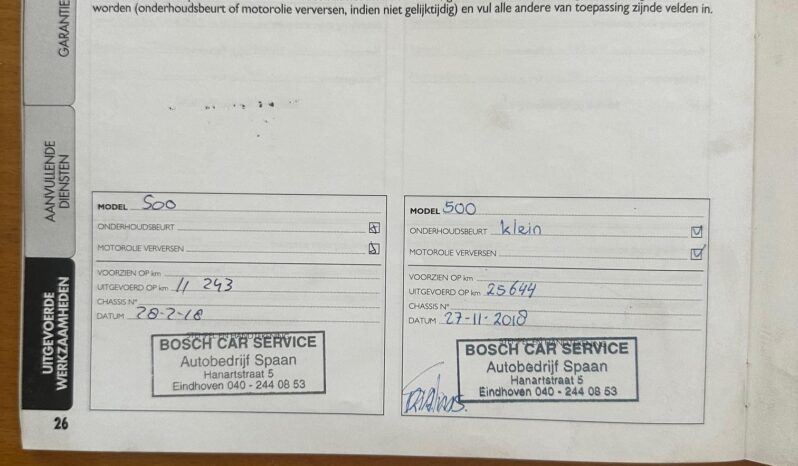 worden (onderhoudsbeurt of motorolie verversen, indien niet gelijktijdig) en vul alle andere van toepassing zijnde velden in.
GARANTIE
AANVULLENDE
DIENSTEN
UITGEVOERDE
WERKZAAMHEDEN
26
MODEL 500
ONDERHOUDSBEURT
MOTOROLIE VERVERSEN
VOORZIEN OP km
UITGEVOERD OP km 11 243
CHASSIS N°
DATUM 28-2-18
BOSCH CAR SERVICE
Autobedrijf Spaan
Hanartstraat 5
Eindhoven 040 - 244 08 53
MODEL 500
ONDERHOUDSBEURT klein
MOTOROLIE VERVERSEN
VOORZIEN OP km
UITGEVOERD OP km 25644
CHASSIS N°
DATUM 27-11-2018
BOSCH CAR SERVICE
Autobedrijf Spaan
Hanartstraat 5
Eindhoven 040 - 244 08 53